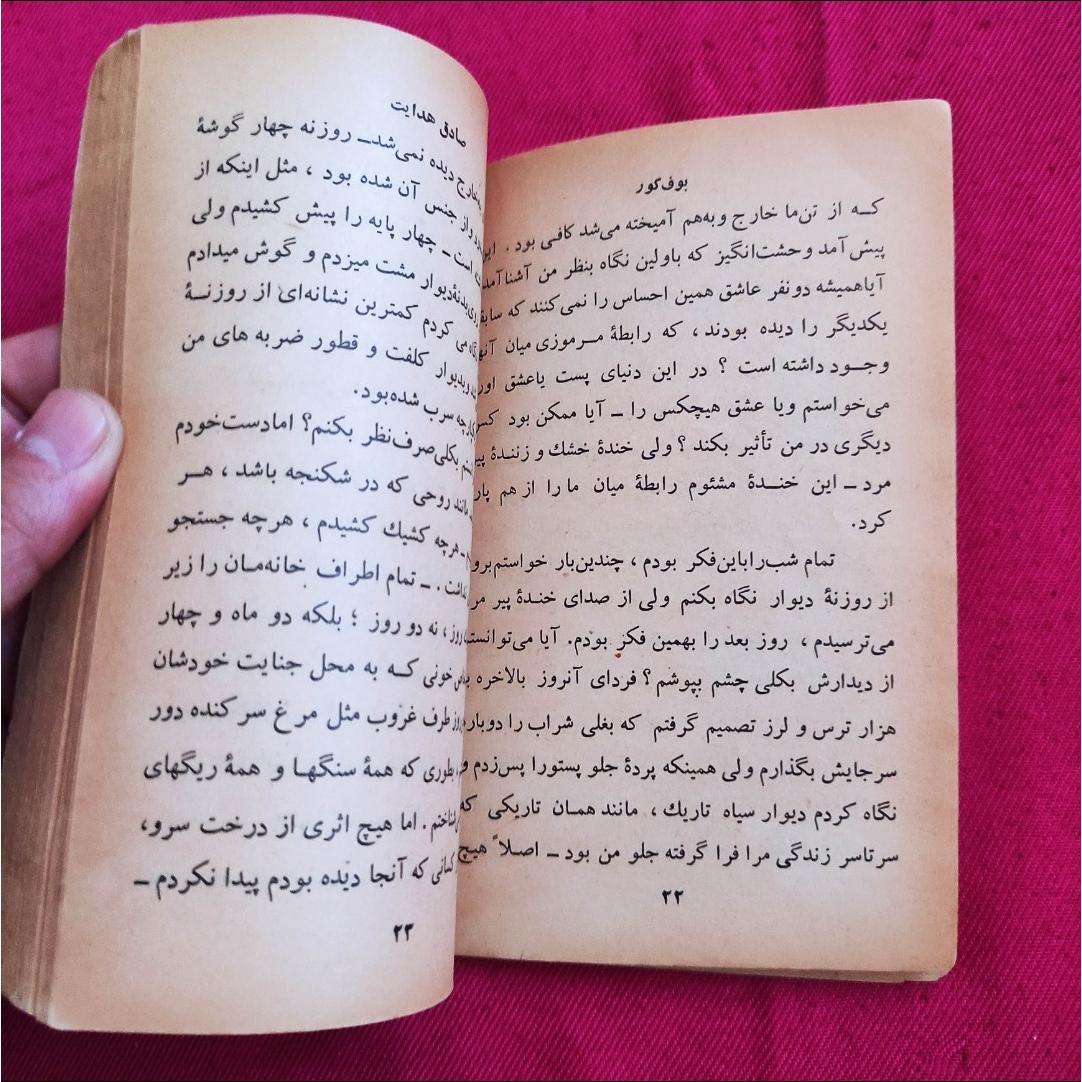 بوف‌کور
که از تن‌ما خارج و به‌هم آمیخته می‌شد کافی بود . این
پیش آمد وحشت‌انگیز که باولین نگاه بنظر من آشناآمد
آیاهمیشه دونفر عاشق همین احساس را نمی‌کنند که
یکدیگر را دیده بودند ، که رابطهٔ مرموزی میان
وجود داشته است ؟ در این دنیای پست یاعشق
می‌خواستم ویا عشق هیچکس را ــ آیا ممکن بود
دیگری در من تأثیر بکند ؟ ولی خندهٔ خشك و زنندهٔ
مرد ــ این خندهٔ مشئوم رابطهٔ میان ما را از هم
کرد.
تمام شب‌راباین‌فکر بودم ، چندین‌بار خواستم‌بروم
از روزنهٔ دیوار نگاه بکنم ولی از صدای خندهٔ پیر
می‌ترسیدم ، روز بعد را بهمین فکر بودم. آیا
از دیدارش بکلی چشم بپوشم ؟ فردای آنروز بالاخره
هزار ترس و لرز تصمیم گرفتم که بغلی شراب را دوباره
سرجایش بگذارم ولی همینکه پردهٔ جلو پستورا پس‌زدم و
نگاه کردم دیوار سیاه تاریك ، مانند همان تاریکی که
سرتاسر زندگی مرا فرا گرفته جلو من بود ــ اصلاً هیچ
۲۲
صادق هدایت
خارج دیده نمی‌شد ــ روزنه چهار گوشهٔ
و از جنس آن شده بود ، مثل اینکه از
است ــ چهار پایه را پیش کشیدم ولی
بدنهٔ‌دیوار مشت میزدم و گوش میدادم
می کردم کمترین نشانه‌ای از روزنهٔ
و بدیوار کلفت و قطور ضربه های من
سرب شده‌بود.
بکلی‌صرف‌نظر بکنم؟ امادست‌خودم
مانند روحی که در شکنجه باشد ، هر
ــ هرچه کشیك کشیدم ، هرچه جستجو
ــ تمام اطراف خانه‌مان را زیر
روز ، نه دو روز ؛ بلکه دو ماه و چهار
خونی که به محل جنایت خودشان
طرف غروب مثل مرغ سرکنده دور
بطوری که همهٔ سنگها و همهٔ ریگهای
. اما هیچ اثری از درخت سرو،
کسانی که آنجا دیده بودم پیدا نکردم ــ
۲۳